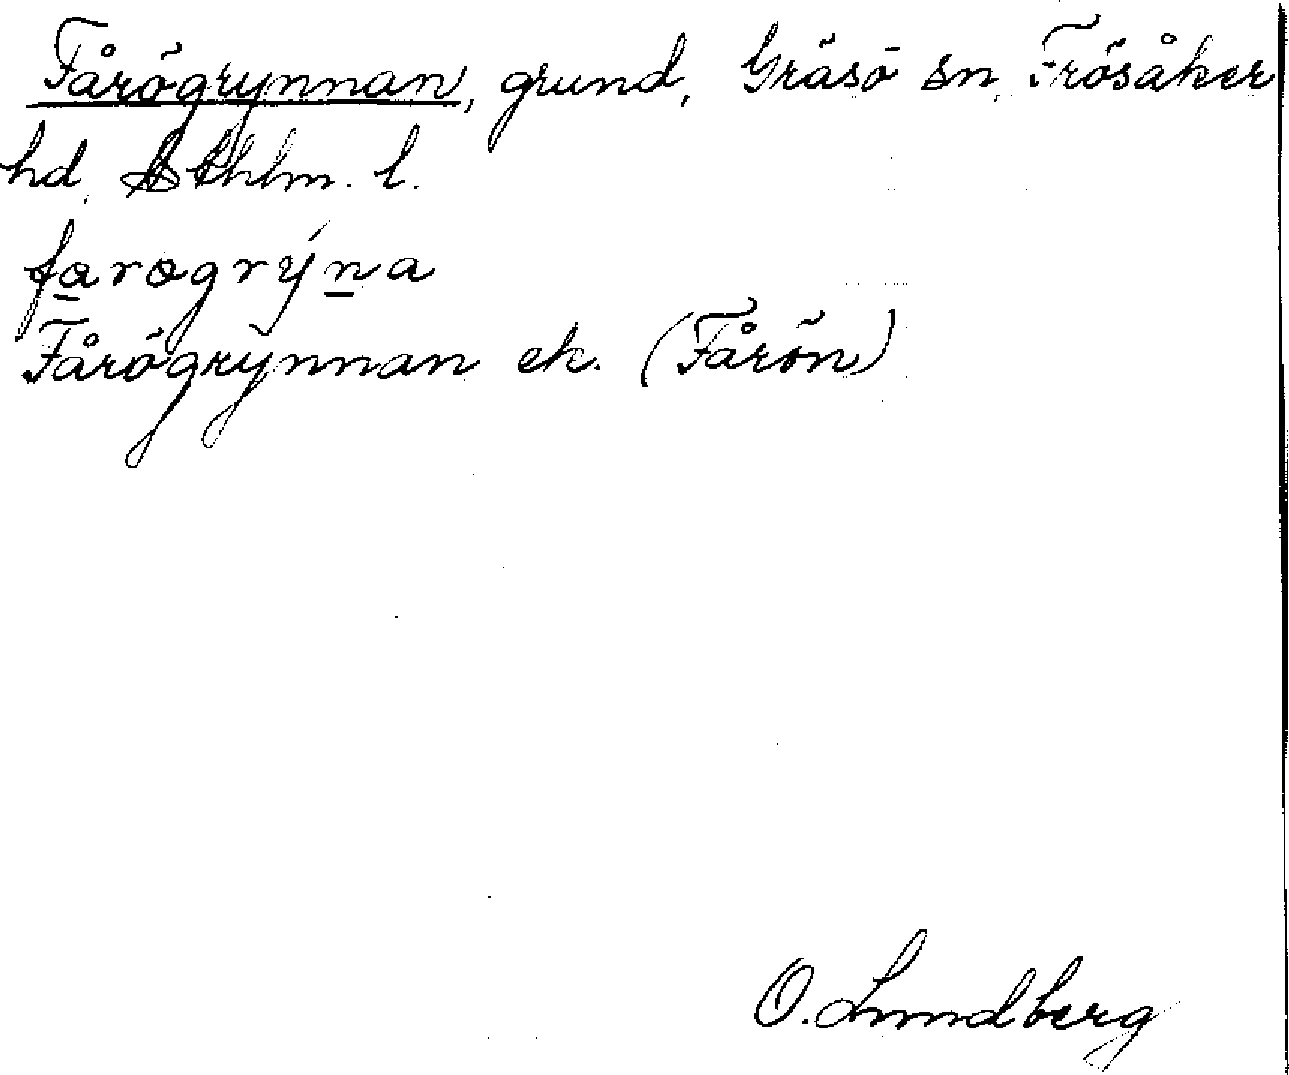 Fårögrynnan, grund, Gräsö sn, Frösåker
hd, Sthlm. l.
farogrýna
Fårögrynnan ek. (Fårön)
O. Lundberg